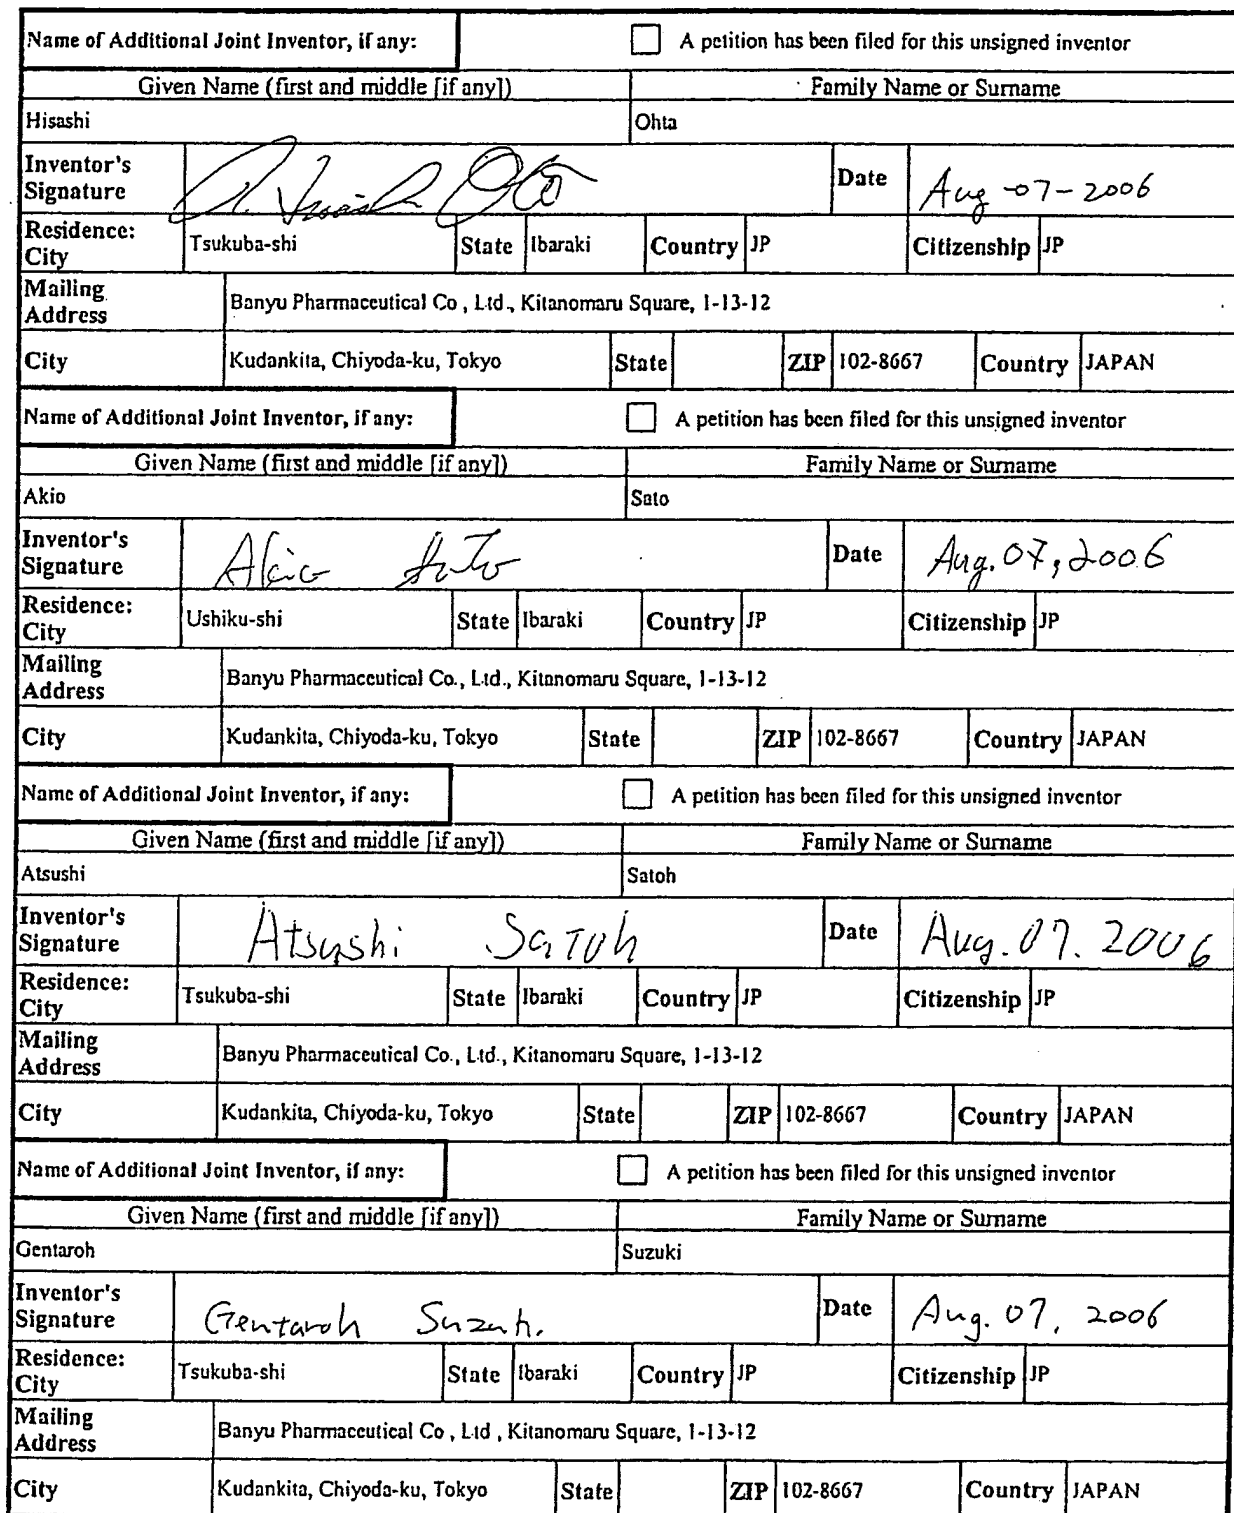 Name of Additional Joint Inventor, if any: A petition has been filed for this unsigned inventor
Given Name (first and middle [if any]) Family Name or Surname
Hisashi Ohta
Inventor's Signature Hisashi Ohta Date Aug-07-2006
Residence: City Tsukuba-shi State Ibaraki Country JP Citizenship JP
Mailing Address Banyu Pharmaceutical Co , Ltd., Kitanomaru Square, 1-13-12
City Kudankita, Chiyoda-ku, Tokyo State ZIP 102-8667 Country JAPAN
Name of Additional Joint Inventor, if any: A petition has been filed for this unsigned inventor
Given Name (first and middle [if any]) Family Name or Surname
Akio Sato
Inventor's Signature Akio Sato Date Aug. 07, 2006
Residence: City Ushiku-shi State Ibaraki Country JP Citizenship JP
Mailing Address Banyu Pharmaceutical Co., Ltd., Kitanomaru Square, 1-13-12
City Kudankita, Chiyoda-ku, Tokyo State ZIP 102-8667 Country JAPAN
Name of Additional Joint Inventor, if any: A petition has been filed for this unsigned inventor
Given Name (first and middle [if any]) Family Name or Surname
Atsushi Satoh
Inventor's Signature Atsushi Satoh Date Aug. 07. 2006
Residence: City Tsukuba-shi State Ibaraki Country JP Citizenship JP
Mailing Address Banyu Pharmaceutical Co., Ltd., Kitanomaru Square, 1-13-12
City Kudankita, Chiyoda-ku, Tokyo State ZIP 102-8667 Country JAPAN
Name of Additional Joint Inventor, if any: A petition has been filed for this unsigned inventor
Given Name (first and middle [if any]) Family Name or Surname
Gentaroh Suzuki
Inventor's Signature Gentaroh Suzuki Date Aug. 07, 2006
Residence: City Tsukuba-shi State Ibaraki Country JP Citizenship JP
Mailing Address Banyu Pharmaceutical Co , Ltd , Kitanomaru Square, 1-13-12
City Kudankita, Chiyoda-ku, Tokyo State ZIP 102-8667 Country JAPAN